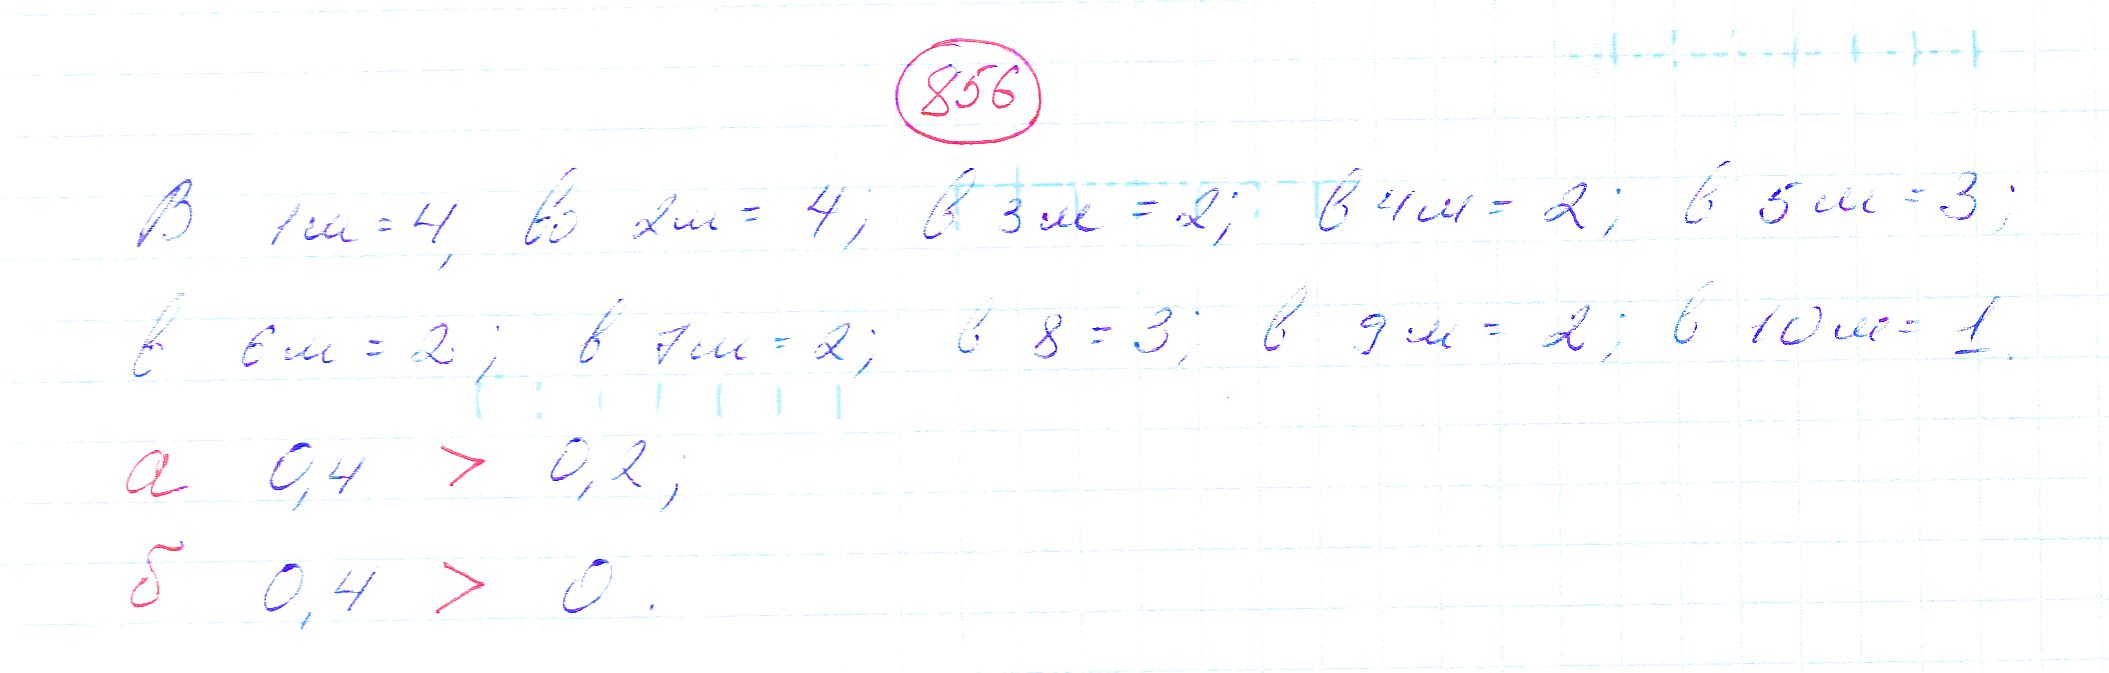 856
В 1м = 4, во 2м = 4; в 3м = 2; в 4м = 2; в 5м = 3;
в 6м = 2; в 7м = 2; в 8 = 3; в 9м = 2; в 10м = 1.
а 0,4 > 0,2;
б 0,4 > 0.